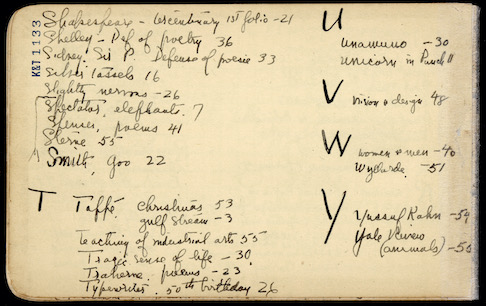 K&T 1133
Shakespeare - tercentenary 1st folio - 21
Shelley - Def of poetry 36
Sidney, Sir P. Defense of poesie 33
Silver tassels 16
Slightly nervous - 26
Spectator, elephants. 7
Spenser, poems 41
Sterne 55
Smith, Goo 22
T
Taffé Christmas 53
gulf stream - 3
Teaching of industrial arts 55
Tragic sense of life - 30
Traherne. poems - 23
Typewriter. 50th birthday 26
U
Unamuno - 30
Unicorn in Punch 11
V
Vision & design 48
W
women & men - 40
- 51
Y
Yussuf Kahn - 54
Yale Review
(animals) - 55